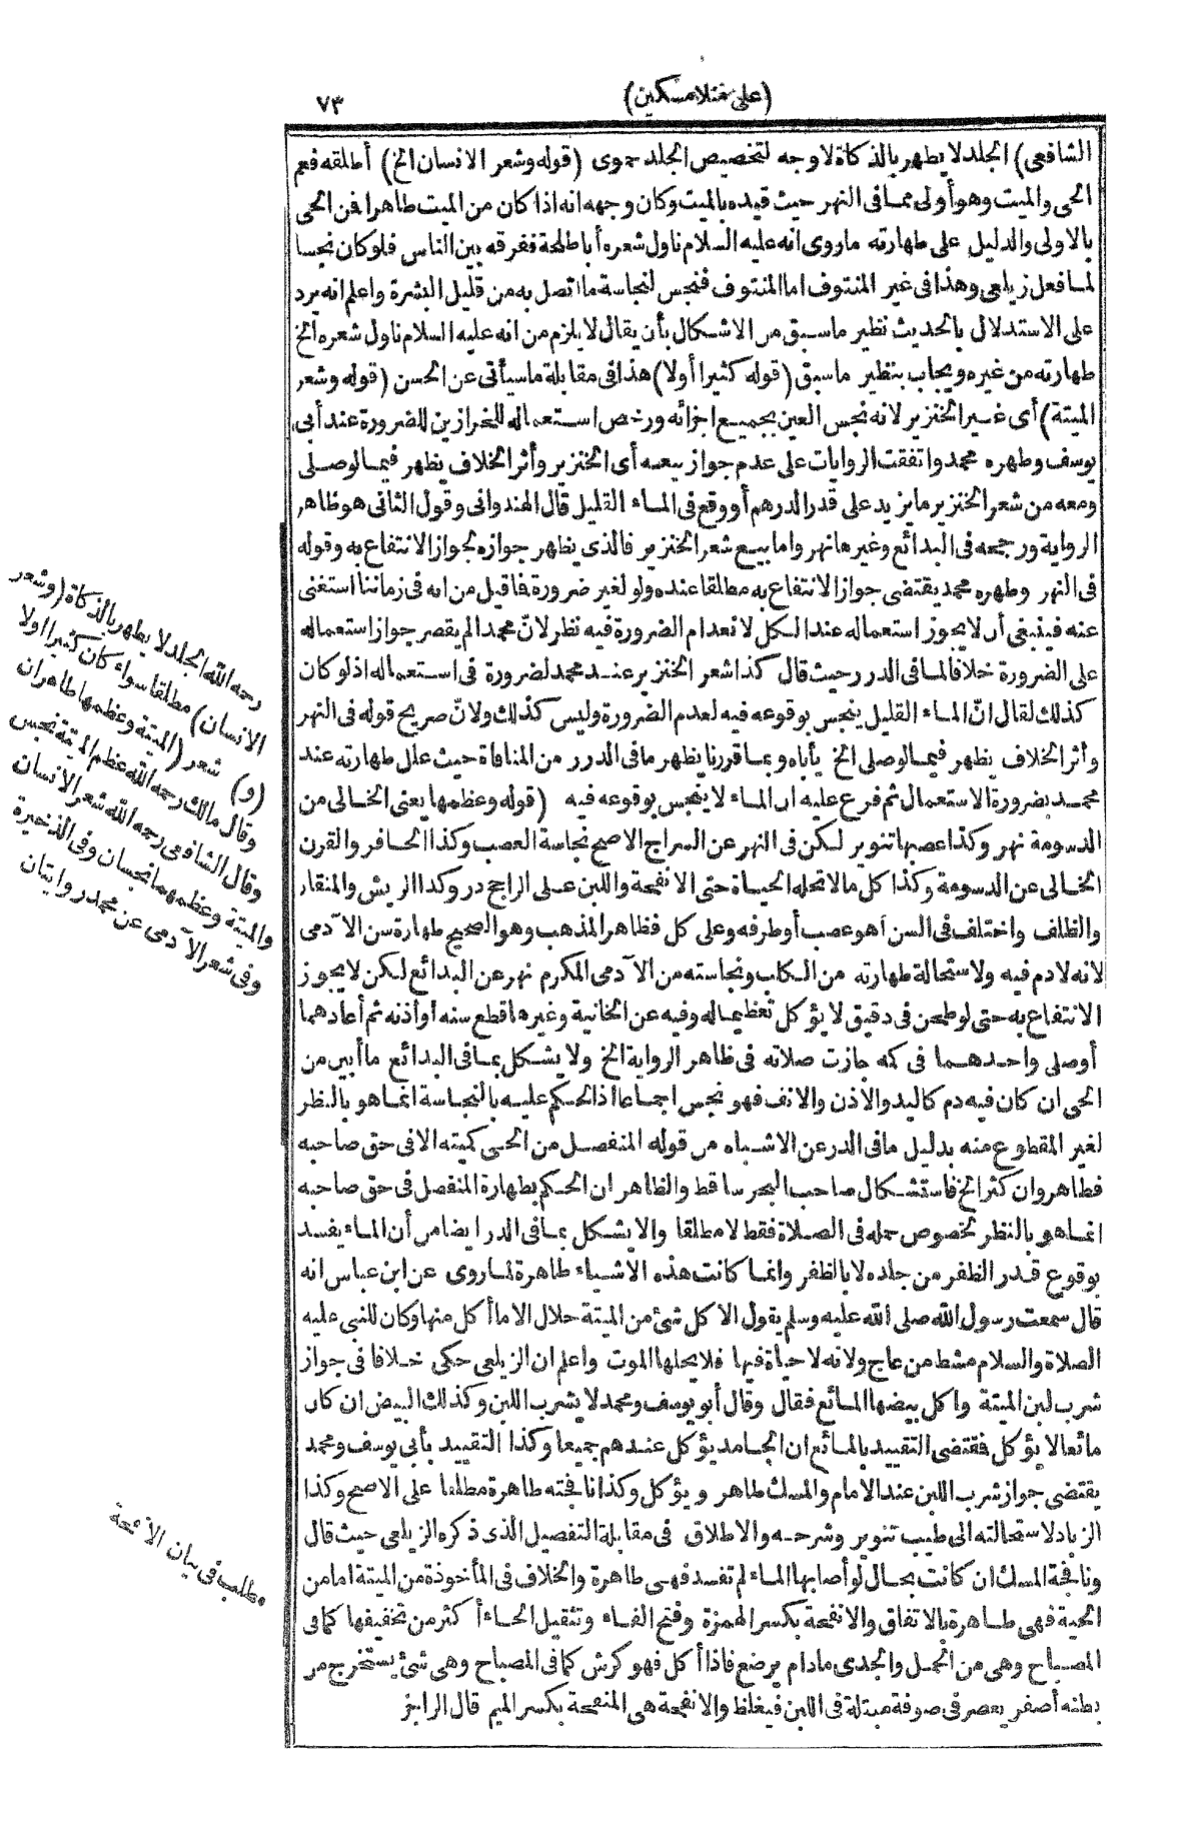 (على منلا مسكين)
٧٣
الشافعى) الجلد لا يطهر بالذكاة لا وجه لتخصيص الجلد حموى (قوله وشعر الانسان الخ) أطلقه فعم
الحى والميت وهو أولى مما فى النهر حيث قيده بالميت وكان وجهه انه اذا كان من الميت طاهرا فمن الحى
بالاولى والدليل على طهارته ماروى انه عليه السلام ناول شعره أبا طلحة ففرقه بين الناس فلو كان نجسا
لما فعل زيلعى وهذا فى غير المنتوف اما المنتوف فنجس لنجاسة ما اتصل به من قليل البشرة واعلم انه يرد
على الاستدلال بالحديث نظير ماسبق من الاشكال بأن يقال لا يلزم من انه عليه السلام ناول شعره الخ
طهارته من غيره ويجاب بنظير ماسبق (قوله كثيرا أولا) هذا فى مقابلة ما سيأتى عن الحسن (قوله وشعر
الميتة) أى غير الخنزير لانه نجس العين بجميع اجزائه ورخص استعماله للخرازين للضرورة عند أبى
يوسف وطهره محمد واتفقت الروايات على عدم جواز بيعه أى الخنزير وأثر الخلاف يظهر فيما لو صلى
ومعه من شعر الخنزير ما يزيد على قدر الدرهم أو وقع فى الماء القليل قال الهندوانى وقول الثانى هو ظاهر
الرواية ورجحه فى البدائع وغيرها نهر واما بيع شعر الخنزير فالذى يظهر جوازه لجواز الانتفاع به وقوله
فى النهر وطهره محمد يقتضى جواز الانتفاع به مطلقا عنده ولو لغير ضرورة فما قيل من انه فى زماننا استغنى
عنه فينبغى أن لا يجوز استعماله عند الكل لانعدام الضرورة فيه نظر لانّ محمدا لم يقصر جواز استعماله
على الضرورة خلافا لما فى الدرر حيث قال كذا شعر الخنزير عند محمد لضرورة فى استعماله اذ لو كان
كذلك لقال انّ الماء القليل ينجس بوقوعه فيه لعدم الضرورة وليس كذلك ولانّ صريح قوله فى النهر
وأثر الخلاف يظهر فيما لو صلى الخ يأباه وبما قررنا يظهر ما فى الدرر من المنافاة حيث علل طهارته عند
محمد بضرورة الاستعمال ثم فرع عليه ان الماء لا ينجس بوقوعه فيه (قوله وعظمها يعنى الخالى من
الدسومة نهر وكذا عصبها تنوير لكن فى النهر عن السراج الاصح نجاسة العصب وكذا الحافر والقرن
الخالى عن الدسومة وكذا كل ما لا تحله الحياة حتى الانفحة واللبن على الراجح در وكذا الريش والمنقار
والظلف واختلف فى السن أهو عصب أو طرفه وعلى كل فظاهر المذهب وهو الصحيح طهارة سن الآدمى
لانه لا دم فيه ولاستحالة طهارته من الكلب ونجاسته من الآدمى المكرم نهر عن البدائع لكن لا يجوز
الانتفاع به حتى لو طحن فى دقيق لا يؤكل تعظيما له وفيه عن الخانية وغيرها قطع سنه أو أذنه ثم أعادهما
أو صلى واحدهما فى كمه جازت صلاته فى ظاهر الرواية الخ ولا يشكل بما فى البدائع ما أبين من
الحى ان كان فيه دم كاليد والأذن والانف فهو نجس اجماعا اذ الحكم عليه بالنجاسة انما هو بالنظر
لغير المقطوع منه بدليل ما فى الدر عن الاشباه من قوله المنفصل من الحى كميته الا فى حق صاحبه
فطاهر وان كثر الخ فاستشكال صاحب البحر ساقط والظاهر ان الحكم بطهارة المنفصل فى حق صاحبه
انما هو بالنظر لخصوص حمله فى الصلاة فقط لا مطلقا والا يشكل بما فى الدر ايضا من أن الماء يفسد
بوقوع قدر الظفر من جلده لا بالظفر وانما كانت هذه الاشياء طاهرة لما روى عن ابن عباس انه
قال سمعت رسول الله صلى الله عليه وسلم يقول الا كل شئ من الميتة حلال الا ما أكل منها وكان للنبى عليه
الصلاة والسلام مشط من عاج ولانه لا حياة فيها فلا يحلها الموت واعلم ان الزيلعى حكى خلافا فى جواز
شرب لبن الميتة واكل بيضها المائع فقال وقال أبو يوسف ومحمد لا يشرب اللبن وكذلك البيض ان كان
مائعا لا يؤكل فقتضى التقييد بالمائع ان الجامد يؤكل عندهم جميعا وكذا التقييد بأبى يوسف ومحمد
يقتضى جواز شرب اللبن عند الامام والمسك طاهر ويؤكل وكذا نافجته طاهرة مطلقا على الاصح وكذا
الزباد لاستحالته الى طيب تنوير وشرحه والاطلاق فى مقابلة التفصيل الذى ذكره الزيلعى حيث قال
ونافجة المسك ان كانت بحال لو أصابها الماء لم تفسد فهى طاهرة والخلاف فى المأخوذة من الميتة اما من
الحية فهى طاهرة بالاتفاق والانفحة بكسر الهمزة وفتح الفاء وتثقيل الحاء أكثر من تخفيفها كما فى
المصباح وهى من الحمل والجدى مادام يرضع فاذا أكل فهو كرش كما فى المصباح وهى شئ يستخرج من
بطنه أصفر يعصر فى صوفة مبتلة فى اللبن فيغلظ والانفحة هى المنفحة بكسر الميم قال الراجز
رحمه الله الجلد لا يطهر بالذكاة (وشعر
الانسان) مطلقا سواء كان كثيرا اولا
(و) شعر (الميتة وعظمها طاهران
وقال مالك رحمه الله عظم الميتة نجس
وقال الشافعى رحمه الله شعر الانسان
والميتة وعظمهما نجسان وفى الذخيرة
وفى شعر الآدمى عن محمد روايتان
مطلب فى بيان الانفحة